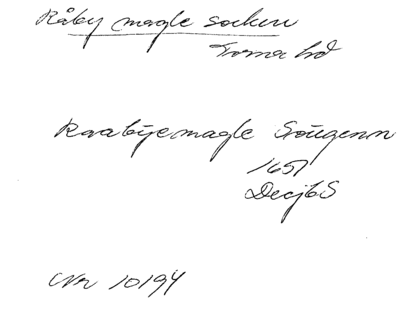 Råby magle socken
Torna hd
Raabÿemagle Sougenn
1651
DecjbS
Nr 10194